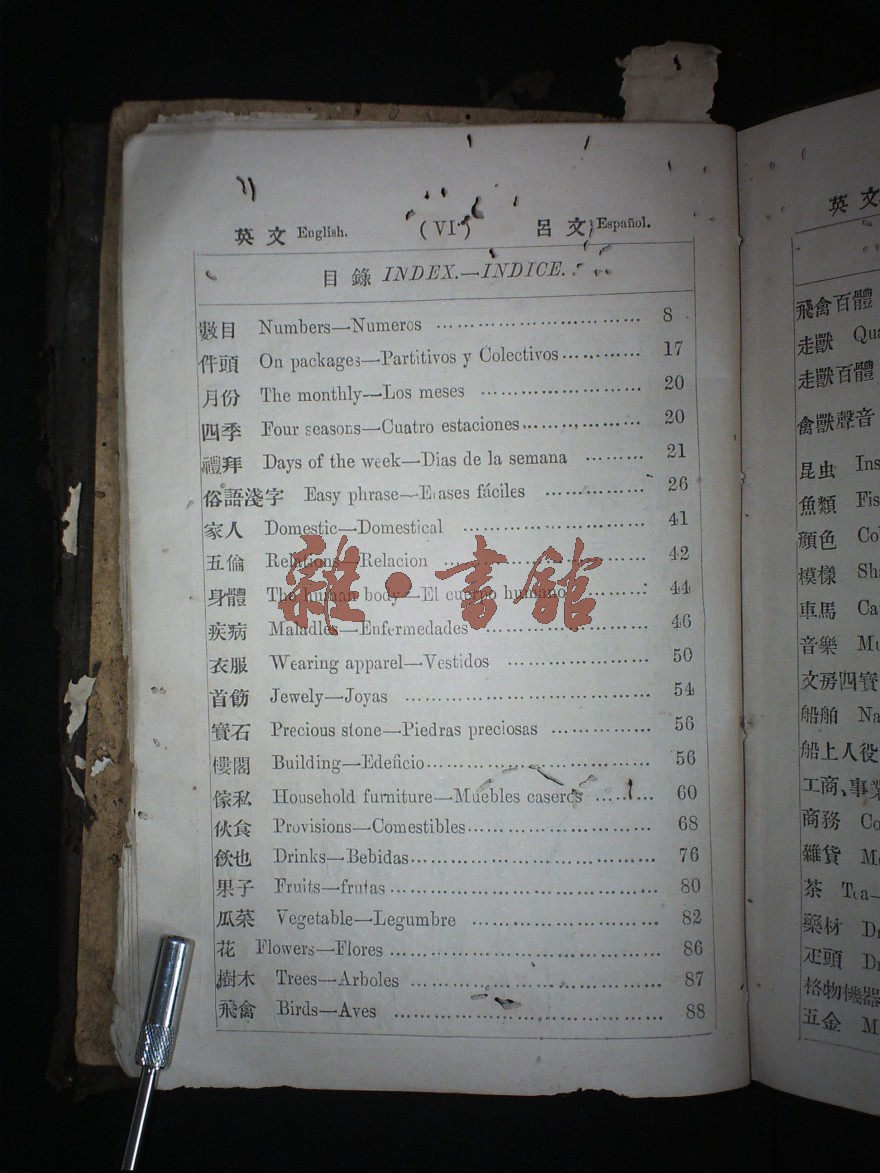 英文 English. (VI) 呂文 Español.
目錄 INDEX.—INDICE.
數目 Numbers—Numeros 8
件頭 On packages—Partitivos y Colectivos 17
月份 The monthly—Los meses 20
四季 Four seasons—Cuatro estaciones 20
禮拜 Days of the week—Dias de la semana 21
俗語淺字 Easy phrase—Frases fáciles 26
家人 Domestic—Domestical 41
五倫 Relations—Relacion 42
身體 The human body—El cuerpo humano 44
疾病 Maladles—Enfermedades 46
衣服 Wearing apparel—Vestidos 50
首飾 Jewely—Joyas 54
寶石 Precious stone—Piedras preciosas 56
樓閣 Building—Edeficio 56
傢私 Household furniture—Muebles caseros 60
伙食 Provisions—Comestibles 68
飲也 Drinks—Bebidas 76
果子 Fruits—frutas 80
瓜菜 Vegetable—Legumbre 82
花 Flowers—Flores 86
樹木 Trees—Arboles 87
飛禽 Birds—Aves 88
雜·書館
英文
飛禽百體
走獸 Qua
走獸百體
禽獸聲音
昆虫 Ins
魚類 Fis
顏色 Col
模樣 Sha
車馬 Ca
音樂 Mu
文房四寶
船舶 Na
船上人役
工商、事業
商務 Co
雜貨 Me
茶 Tea—
藥材 Dr
疋頭 Dr
格物機器
五金 M